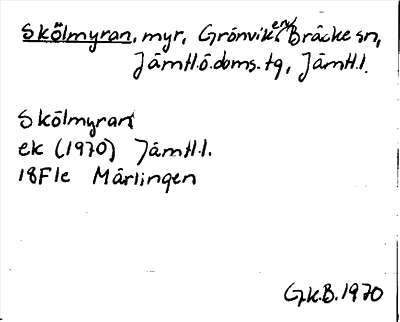 Skölmyran, myr, Grönviken, Bräcke sn,
Jämtl.ö.doms.tg, Jämtl.l.
Skölmyran
ek (1970) Jämtl.l.
18F1e Mårlingen
G.k.B. 1970